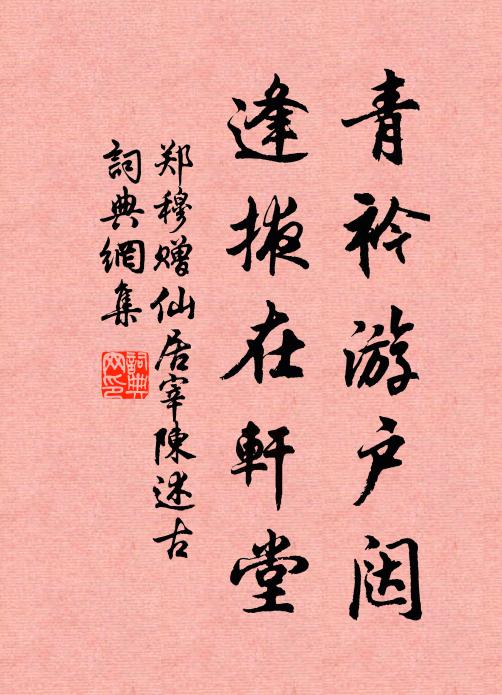 青衿游户闼
逢掖在軒堂
郑穆赠仙居宰陳述古
詞典網集
詞典网印